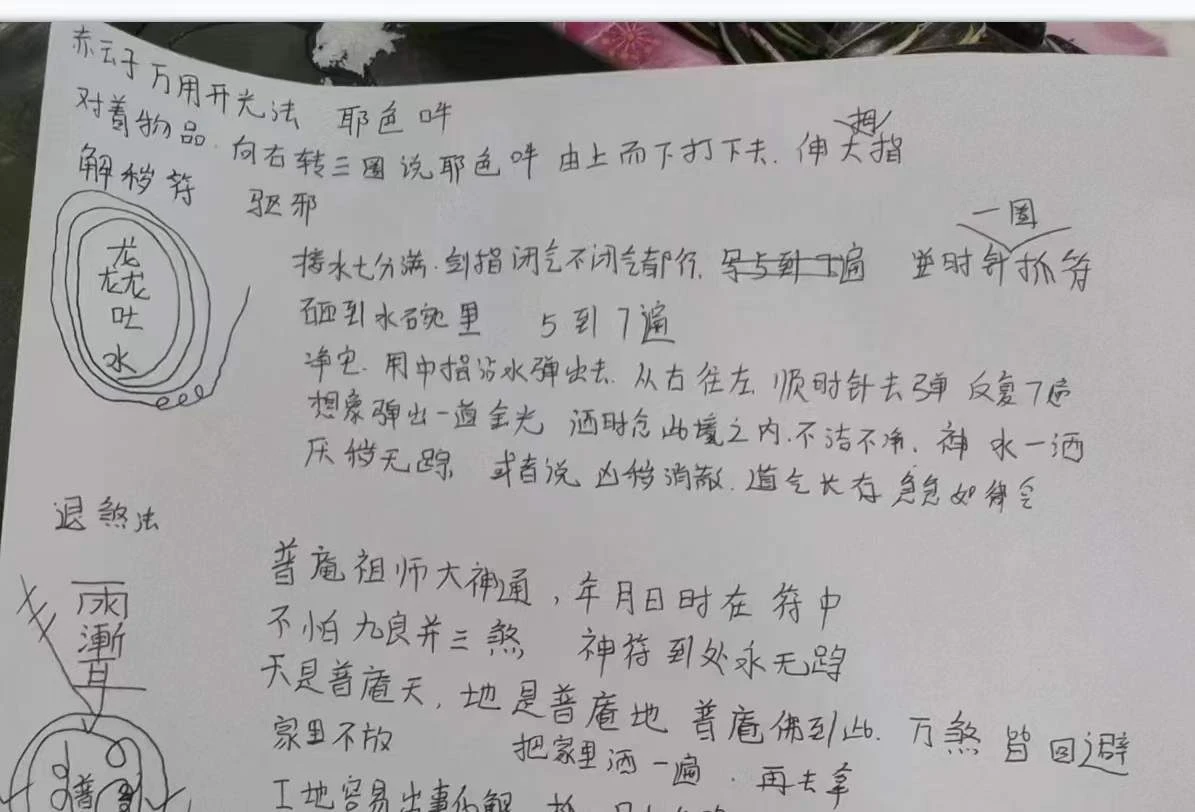 赤云子万用开光法 耶色吽
对着物品.向右转三圈说耶色吽 由上而下打下去.伸大拇指
解秽符 驱邪
一圈
龙
龙龙
吐
水
接水七分满.剑指闭气不闭气都行. 并时针抓符
砸到水碗里 5到7遍
净宅.用中指沾水弹出去.从右往左 顺时针去弹 反复7遍
想象弹出一道金光 洒时念此境之内.不洁不净.神水一洒
厌秽无踪 或者说 凶秽消散.道气长存 急急如律令
退煞法
普庵祖师大神通,年月日时在符中
不怕九良并三煞 神符到处永无踪
天是普庵天,地是普庵地 普庵佛到此.万煞皆回避
家里不放 把家里洒一遍.再去拿
雨渐耳
普
工地容易出事